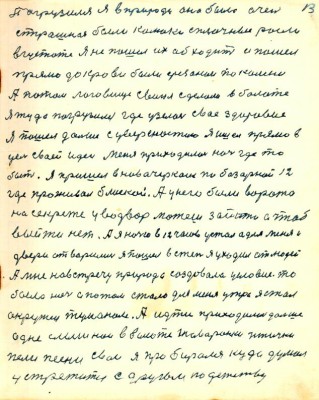 13
Погрузился я в природу она была очен
страшная были камыши сплочные росли
в густоте Я не пошел их обходит а пошел
прямо до крови были срезаны по колени
А потом логовище Свиня сделала в болоте
Я туда погрузился где узнал свае здоровие
Я пошел далше с уверсностию Я ишел прямо в
цел своей идеи меня приходилась ноч где то
быт. Я пришел в новачеркаск по базарной 12
где проживал близкой. А у него были ворота
на секрете у во двор можеш зайти а таб
выйти нет. А я ночю в 12 часов устал а для меня и
двери отварили и я пошел в степ я уходил от людей
А мне навстречу природа создовала условие. то
была ноч а потом стало для меня утра я стал
окружен туманом. А идти приходилос далше
одне слышно в болоте товаройки птички
пели песни свои я пробирался куда думал
устретитя с другом по детству